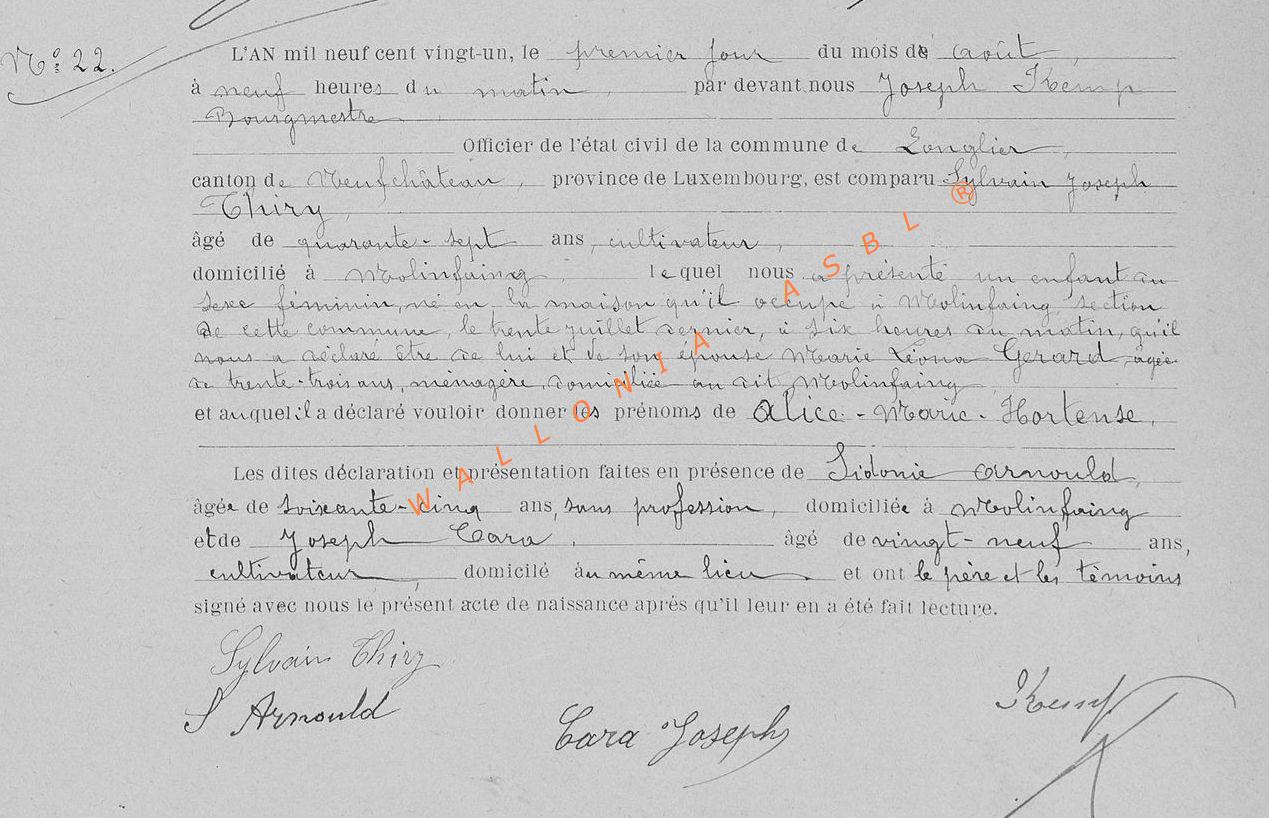 N° 22.
L'AN mil neuf cent vingt-un, le premier jour du mois de août,
à neuf heures du matin, par devant nous Joseph Kemp
Bourgmestre
Officier de l'état civil de la commune de Longlier,
canton de Neufchâteau, province de Luxembourg, est comparu Sylvain Joseph
Thiry,
âgé de quarante-sept ans, cultivateur,
domicilié à Molinfaing lequel nous a présenté un enfant du
sexe féminin, né en la maison qu'il occupe à Molinfaing section
de cette commune, le trente juillet dernier, à six heures du matin, qu'il
nous a déclaré être de lui et de son épouse Marie Léona Gerard, agée
de trente-trois ans, ménagère, domiciliée au dit Molinfaing
et auquel il a déclaré vouloir donner les prénoms de Alice-Marie-Hortense.
Les dites déclaration et présentation faites en présence de Sidonie Arnould,
âgée de soixante-cinq ans, sans profession, domiciliée à Molinfaing
et de Joseph Cara, âgé de vingt-neuf ans,
cultivateur, domicilé au même lieu. et ont le père et les témoins
signé avec nous le présent acte de naissance après qu'il leur en a été fait lecture.
Sylvain Thiry
S Arnould
Cara Joseph
Kemp
WALLONIA ASBL ®